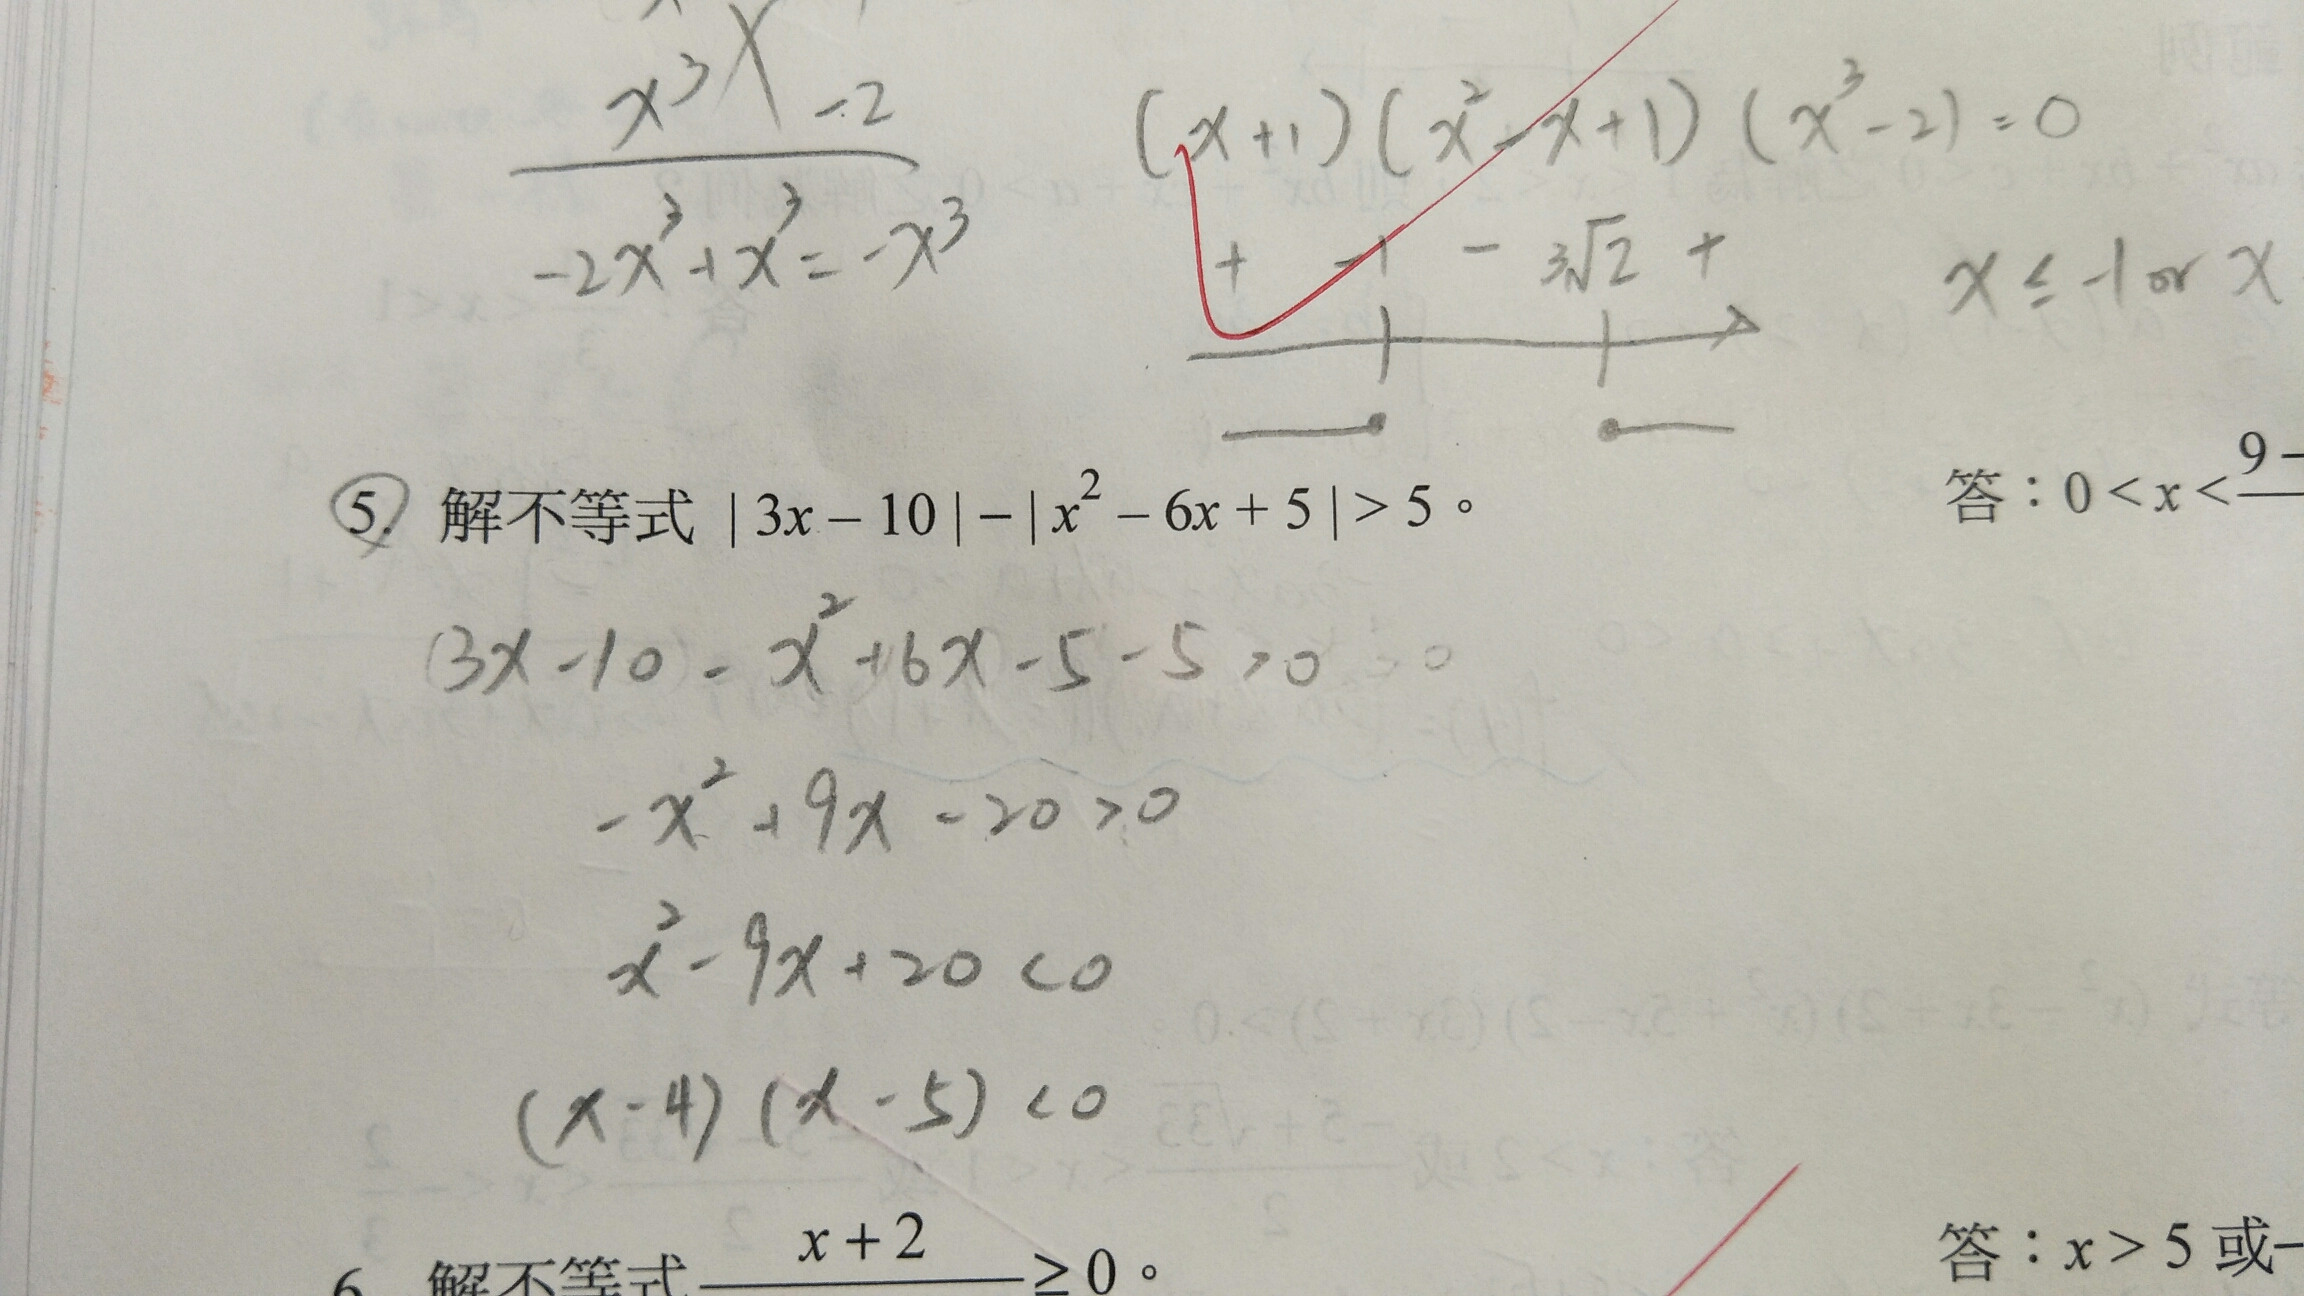 x³ -2
-2x³+x³=-x³
(x+1)(x²-x+1)(x³-2)=0
+ -1 - ³√2 +
x ≤ -1 or x
5. 解不等式 |3x-10|-|x²-6x+5|>5。
答：0<x<9-
3x-10-x²+6x-5-5>0
-x²+9x-20>0
x²-9x+20<0
(x-4)(x-5)<0
6. 解不等式 x+2 ≥0。
答：x>5 或-